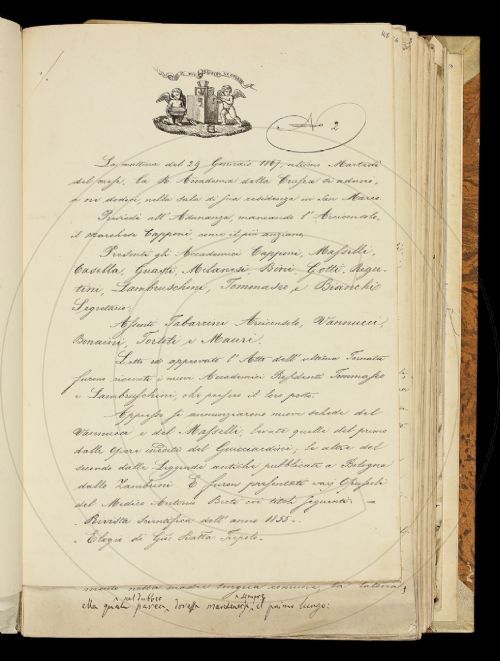 No 2
La mattina del 29 Gennaio 1867, ultimo Martedì
del mese, la R. Accademia della Crusca si adunò,
a ore dodici, nella sala di sua residenza in San Marco.
Presiedé all'Adunanza, mancando l'Arciconsolo,
il Marchese Capponi, come il più anziano.
Presenti gli Accademici Capponi, Masselli,
Casella, Guasti, Milanesi, Bini, Gotti, Rigu-
tini, Lambruschini, Tommaseo, e Bianchi
Segretario.
Assenti Tabarrini Arciconsolo, Vannucci,
Bonaini, Tortoli e Mauri.
Letto ed approvato l'Atto dell'ultima Tornata
furono ricevuti i nuovi Accademici Residenti Tommaseo
e Lambruschini, che presero il loro posto.
Appresso si annunziarono nuove schede del
Vannucci e del Masselli, levate quelle del primo
dalle Opere inedite del Guicciardini, le altre del
secondo dalle Leggende antiche pubblicate a Bologna
dallo Zambrini. E furon presentati varj Opuscoli
del Medico Antonio Berti coi titoli seguenti. —
- Rivista Scientifica dell'anno 1855. -
- Elogio di Gio. Batta Tiepolo. -
nella madre lingua comune, la latina
alla quale pareva, dovesse mantenersi, il primo luogo: